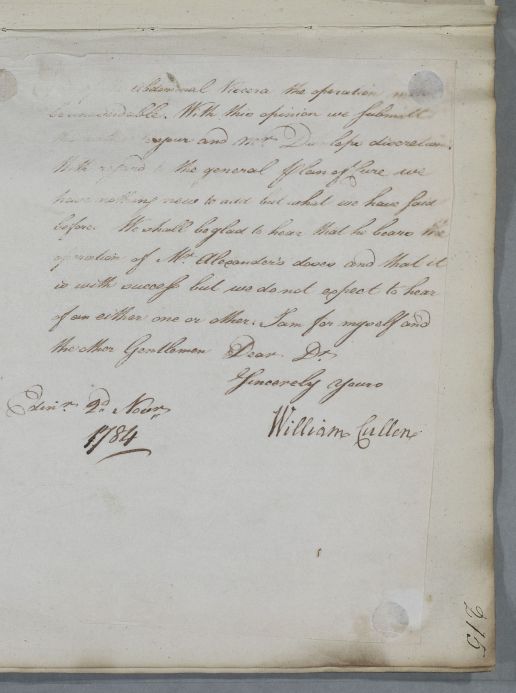 Abdominal Viscera the operation
be unavoidable. With this opinion we submitt
your and Mr Dunlops discretion.
With regard the general Plan of Cure we
have nothing new to add but what we have said
before. We shall be glad to hear that he bears the
operation of Mr Alexander's doses and that it
is with success but we do not expect to hear
of an either one or other. I am for myself and
the other Gentlemen Dear Dr
Sincerely Yours
Edinr 2d Novr
William Cullen
1784
215